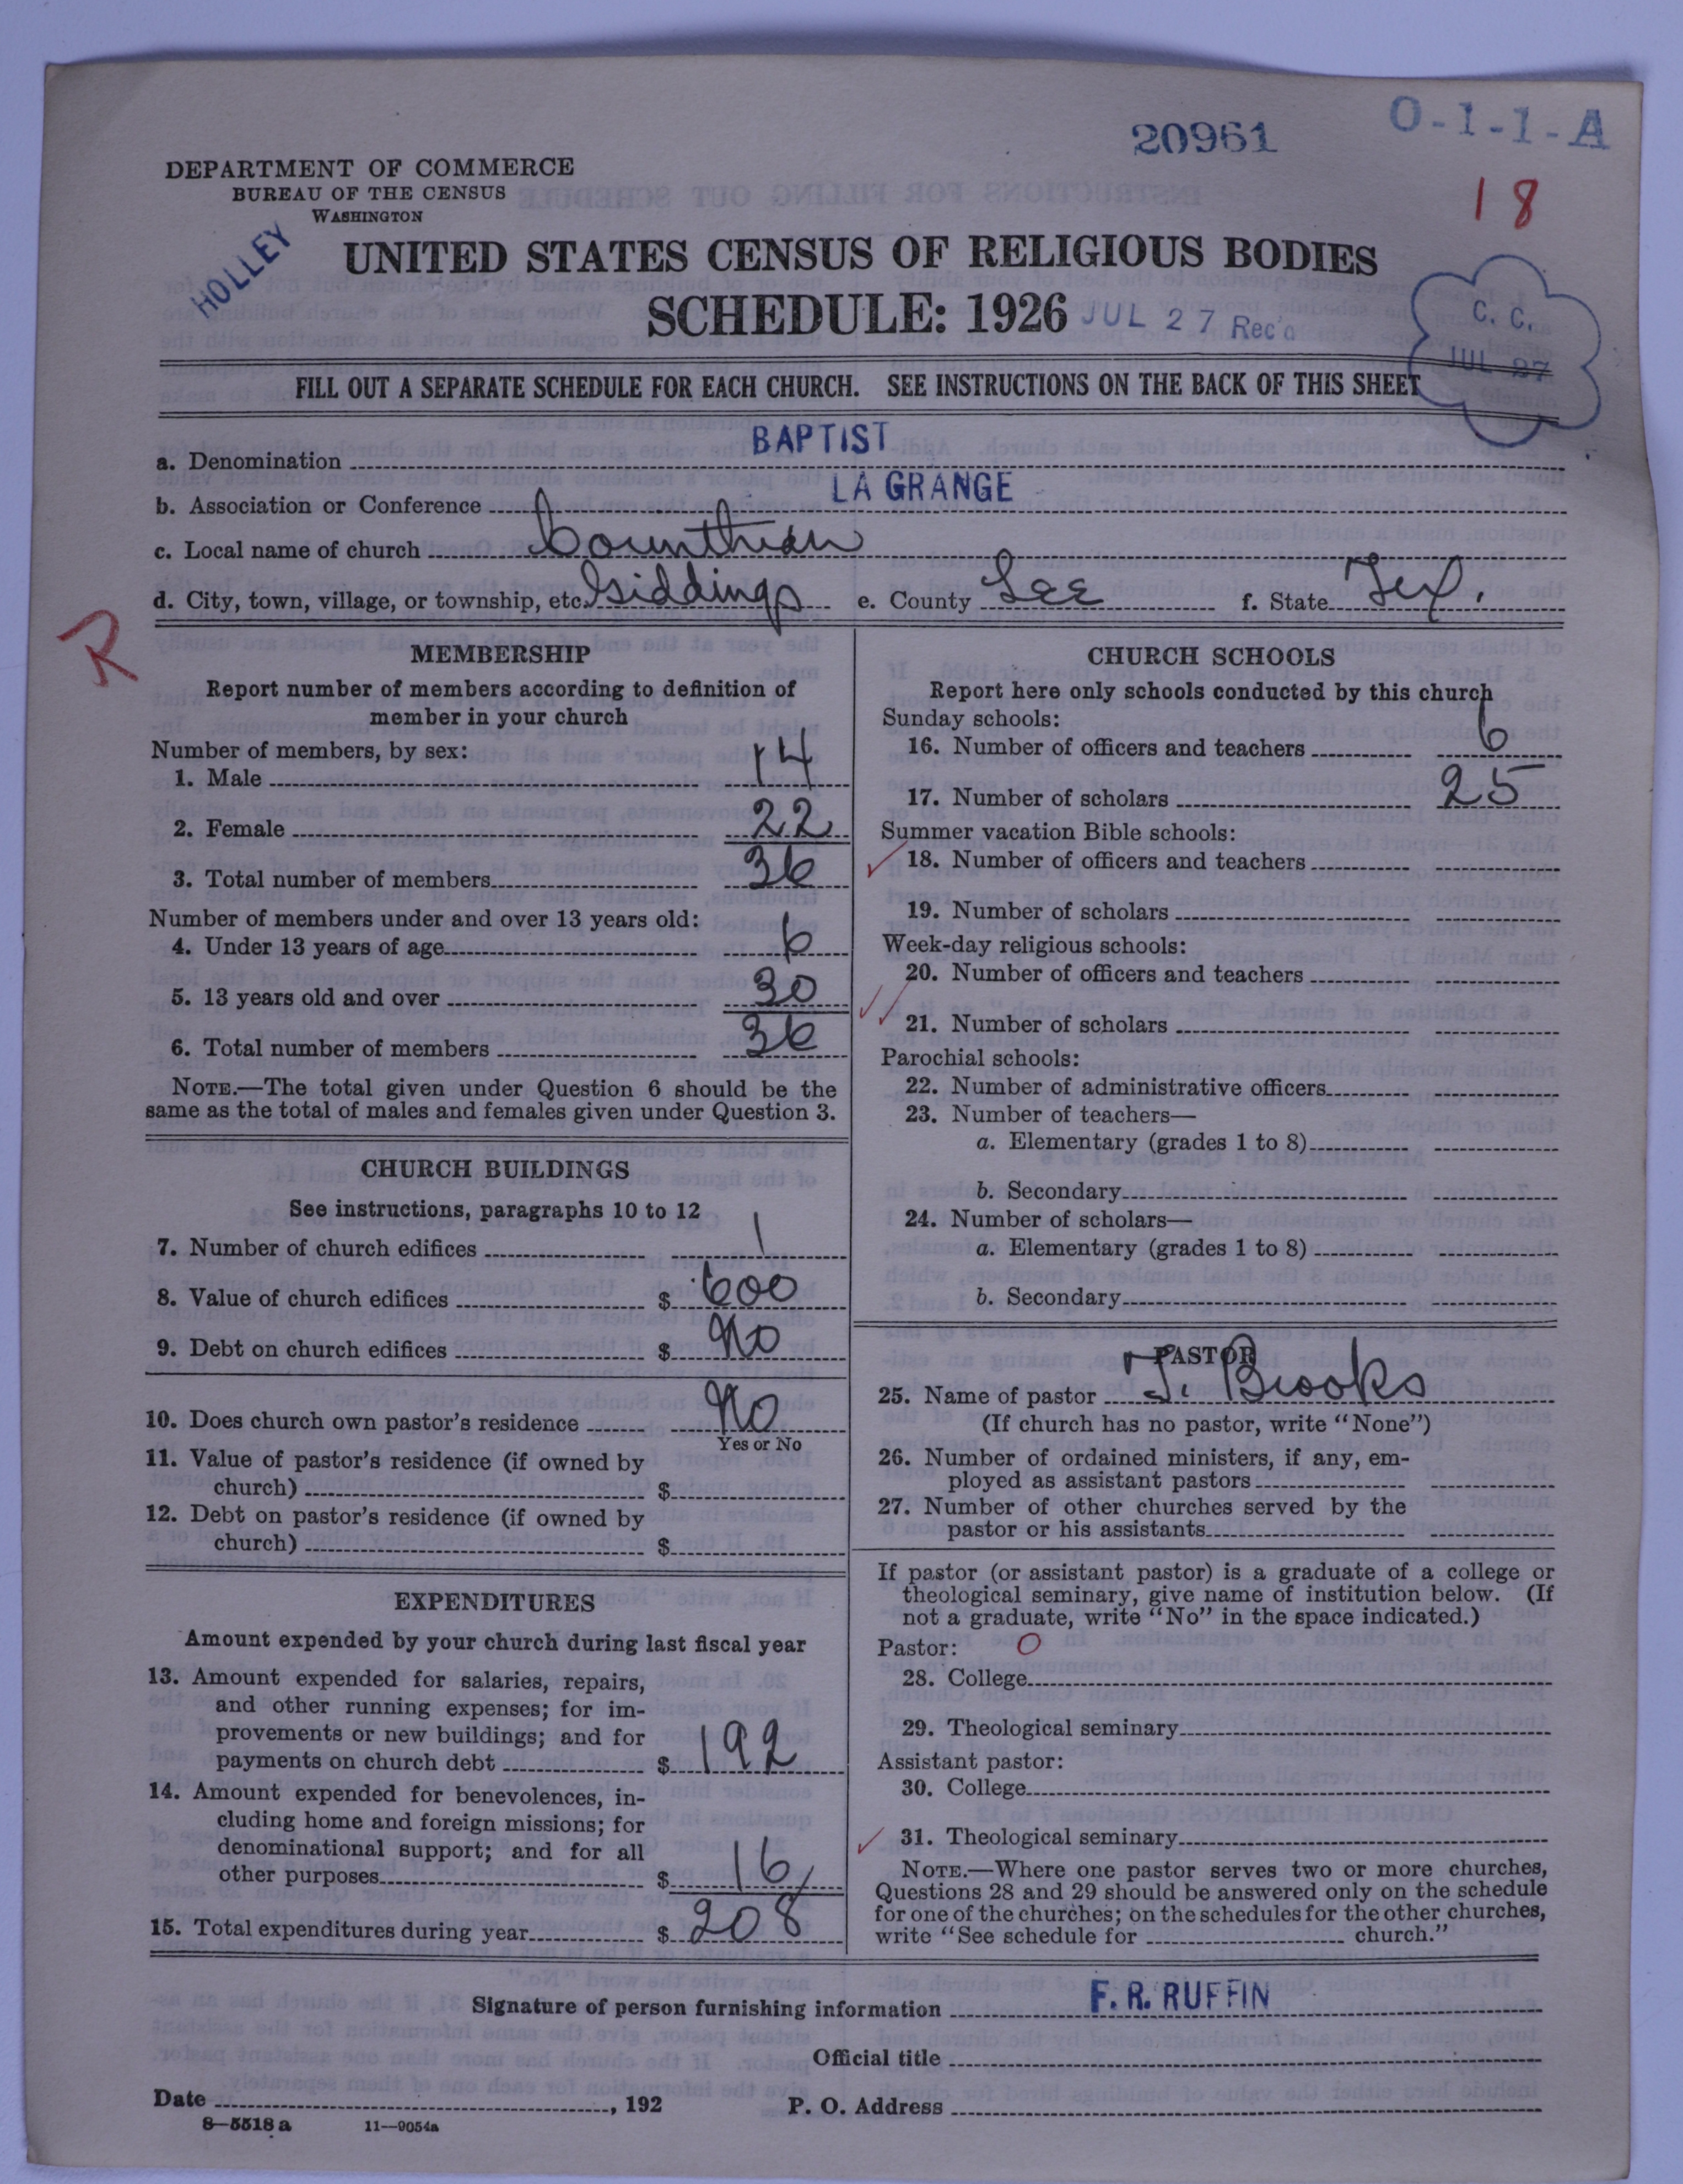 20961
O-1-1-A
DEPARTMENT OF COMMERCE
BUREAU OF THE CENSUS
WASHINGTON
18
HOLLEY
UNITED STATES CENSUS OF RELIGIOUS BODIES
SCHEDULE: 1926
JUL 27 Rec'd
C. C.
JUL 27
FILL OUT A SEPARATE SCHEDULE FOR EACH CHURCH. SEE INSTRUCTIONS ON THE BACK OF THIS SHEET
a. Denomination BAPTIST
b. Association or Conference LA GRANGE
c. Local name of church Corinthian
d. City, town, village, or township, etc. Giddings e. County Lee f. State Tex.
R
MEMBERSHIP
Report number of members according to definition of
member in your church
Number of members, by sex:
1. Male 14
2. Female 22
3. Total number of members 36
Number of members under and over 13 years old:
4. Under 13 years of age 6
5. 13 years old and over 30
6. Total number of members 36
NOTE.—The total given under Question 6 should be the
same as the total of males and females given under Question 3.
CHURCH BUILDINGS
See instructions, paragraphs 10 to 12
7. Number of church edifices 1
8. Value of church edifices $ 600
9. Debt on church edifices $ No
10. Does church own pastor's residence No
Yes or No
11. Value of pastor's residence (if owned by
church) $
12. Debt on pastor's residence (if owned by
church) $
EXPENDITURES
Amount expended by your church during last fiscal year
13. Amount expended for salaries, repairs,
and other running expenses; for im-
provements or new buildings; and for
payments on church debt $ 192
14. Amount expended for benevolences, in-
cluding home and foreign missions; for
denominational support; and for all
other purposes $ 16
15. Total expenditures during year $ 208
CHURCH SCHOOLS
Report here only schools conducted by this church
Sunday schools:
16. Number of officers and teachers 6
17. Number of scholars 25
Summer vacation Bible schools:
18. Number of officers and teachers
19. Number of scholars
Week-day religious schools:
20. Number of officers and teachers
21. Number of scholars
Parochial schools:
22. Number of administrative officers
23. Number of teachers—
a. Elementary (grades 1 to 8)
b. Secondary
24. Number of scholars—
a. Elementary (grades 1 to 8)
b. Secondary
PASTOR
25. Name of pastor J. Brooks
(If church has no pastor, write "None")
26. Number of ordained ministers, if any, em-
ployed as assistant pastors
27. Number of other churches served by the
pastor or his assistants
If pastor (or assistant pastor) is a graduate of a college or
theological seminary, give name of institution below. (If
not a graduate, write "No" in the space indicated.)
Pastor: O
28. College
29. Theological seminary
Assistant pastor:
30. College
31. Theological seminary
NOTE.—Where one pastor serves two or more churches,
Questions 28 and 29 should be answered only on the schedule
for one of the churches; on the schedules for the other churches,
write "See schedule for church."
Signature of person furnishing information F. R. RUFFIN
Official title
Date , 192 P. O. Address
8—5518 a 11—9054a